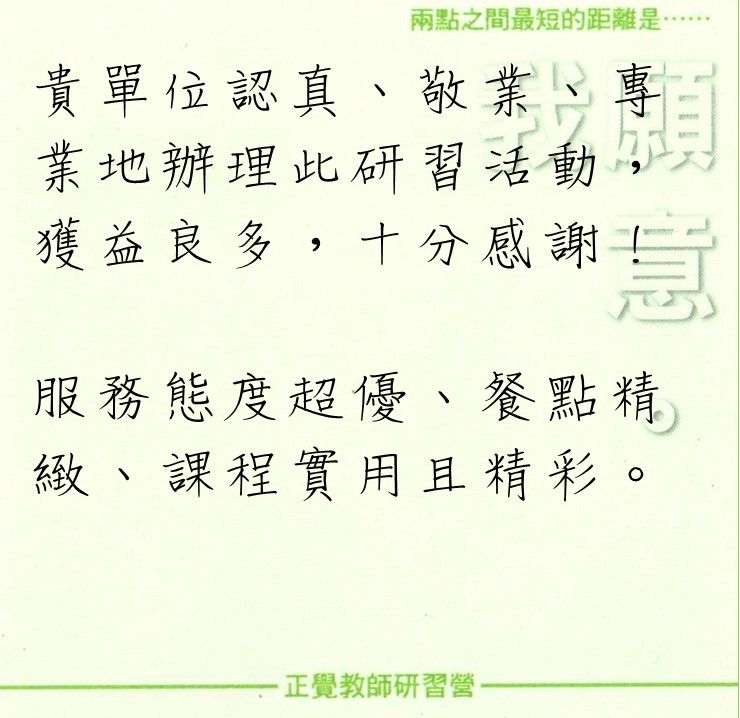 兩點之間最短的距離是……
我願
意
。
貴單位認真、敬業、專
業地辦理此研習活動，
獲益良多，十分感謝！
服務態度超優、餐點精
緻、課程實用且精彩。
正覺教師研習營